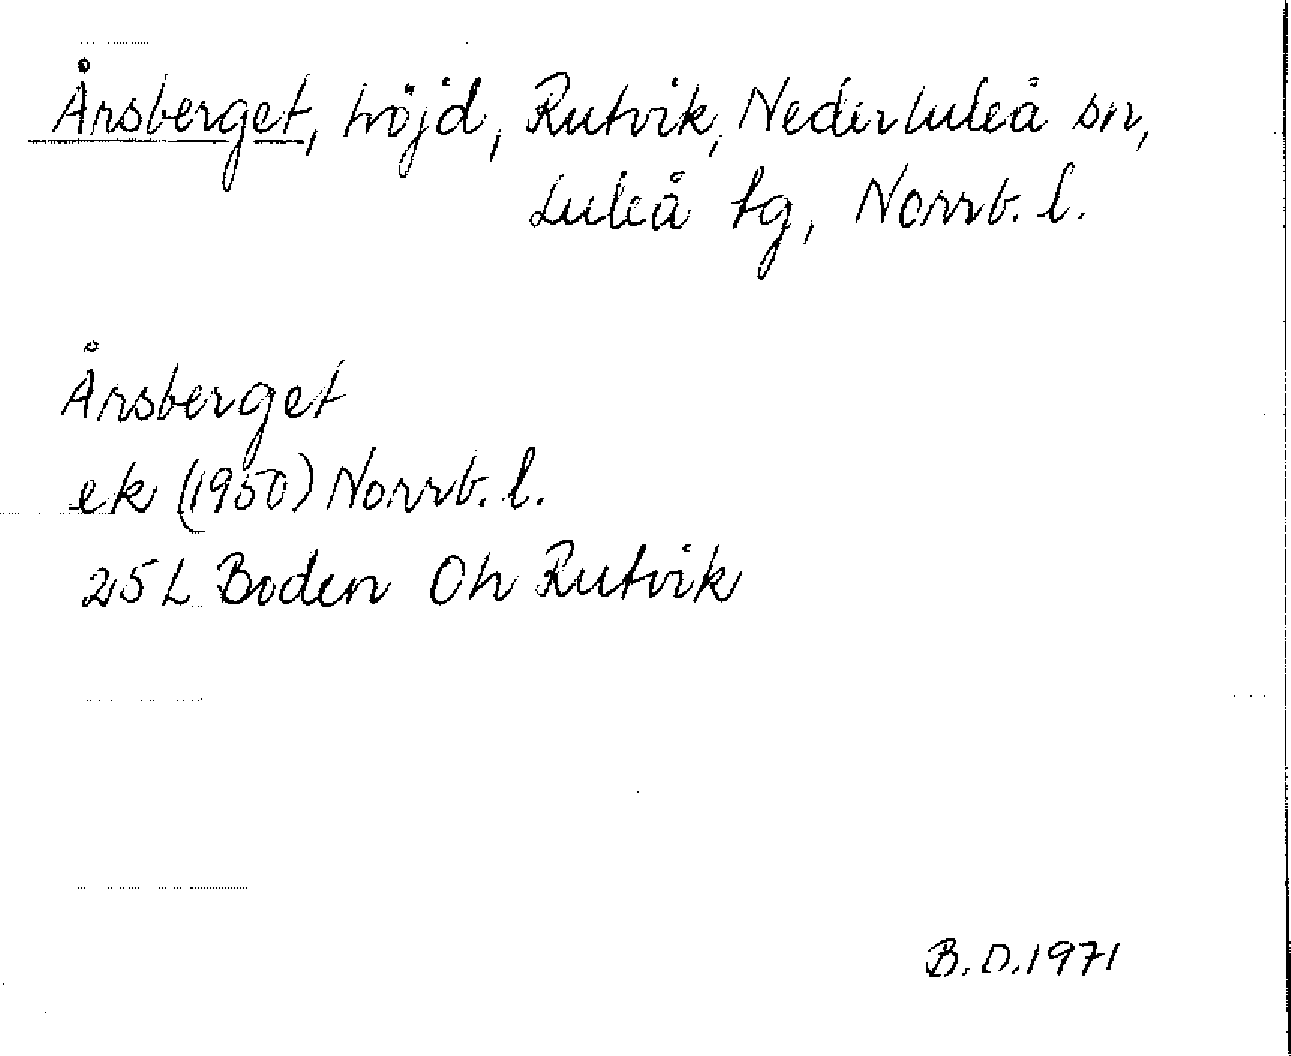 Årsberget, höjd, Rutvik, Nederluleå sn,
Luleå tg, Norrb. l.
Årsberget
ek (1950) Norrb. l.
25 L Boden Oh Rutvik
B.D.1971